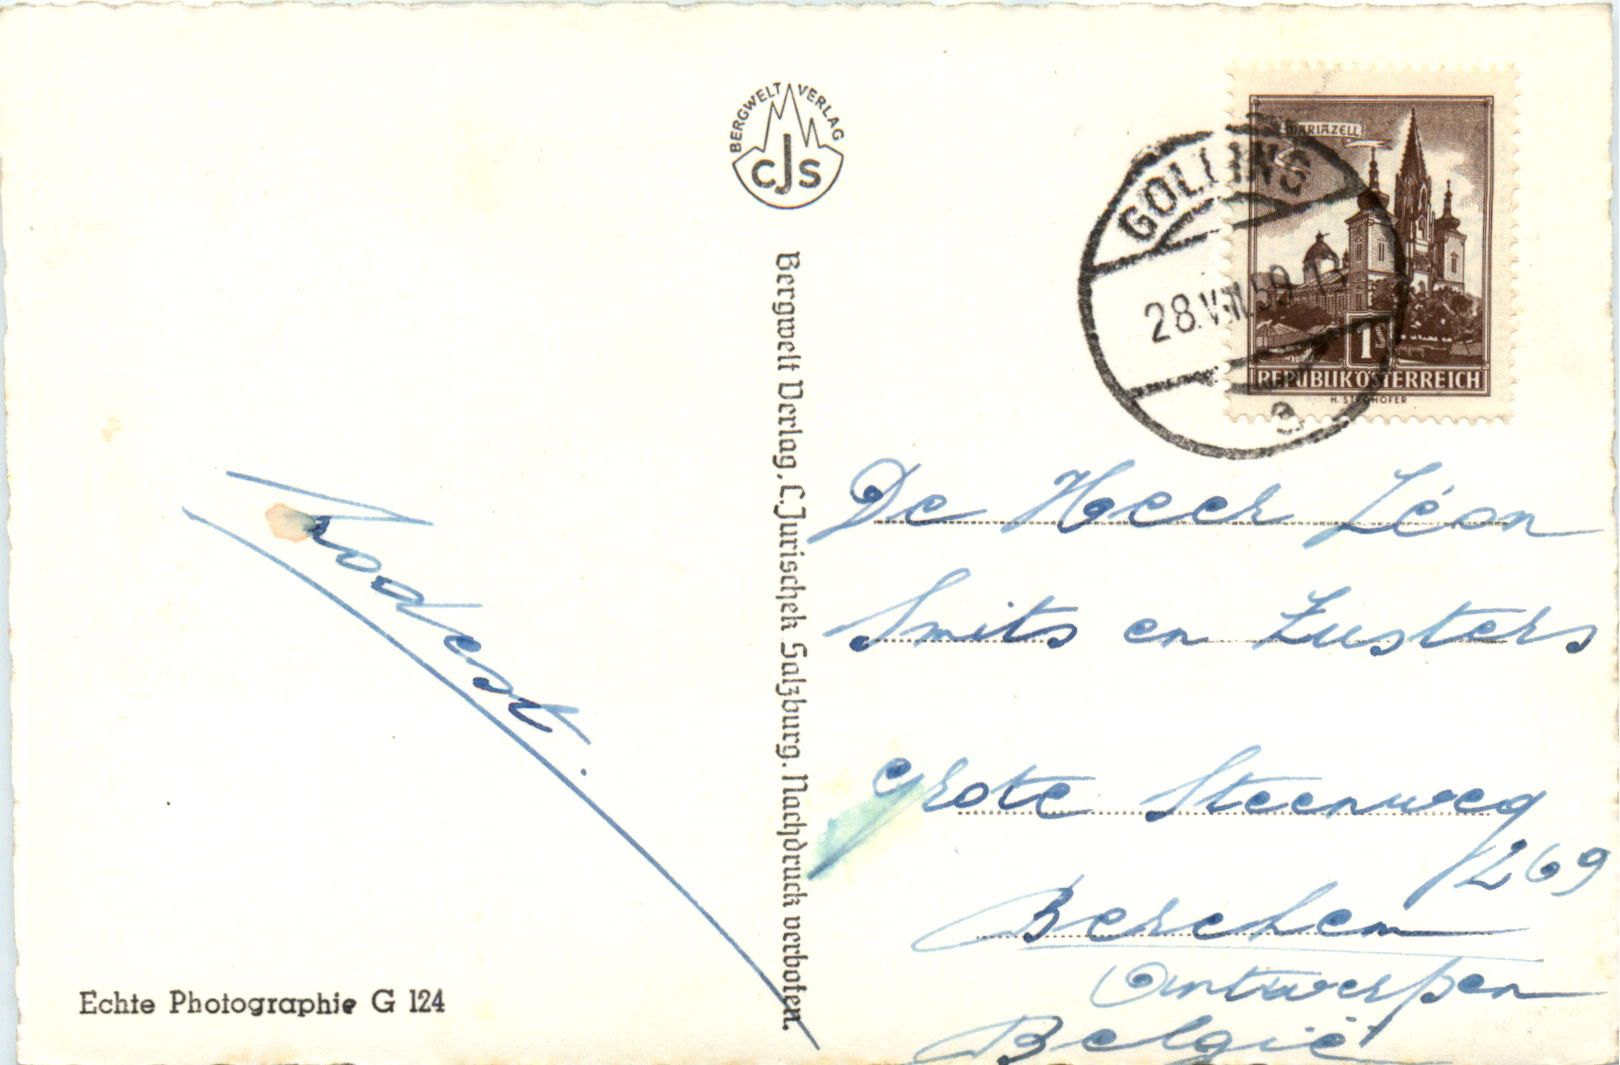 BERGWELT VERLAG
CJS
MARIAZELL
GOLLING
28.VIII.59
1S
REPUBLIK ÖSTERREICH
H. STROHOFER
e
Bergwelt Verlag, C. Jurischek Salzburg. Nachdruck verboten.
De Heer Léon
Smits en Zusters
Grote Steenweg
269
Berchem
Antwerpen
België
Echte Photographie G 124